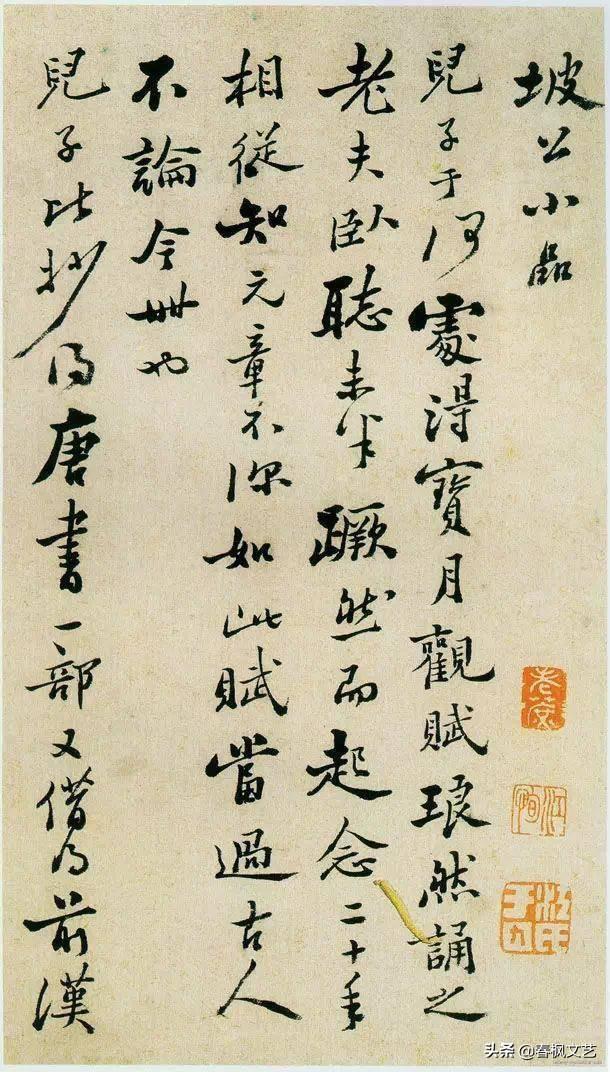 坡公小品
兒子于何處得寶月觀賦琅然誦之
老夫臥聽未半蹶然而起念二十年
相從知元章不深如此賦當過古人
不論今世也
兒子比抄得唐書一部又借得前漢
头条 @春枫文艺